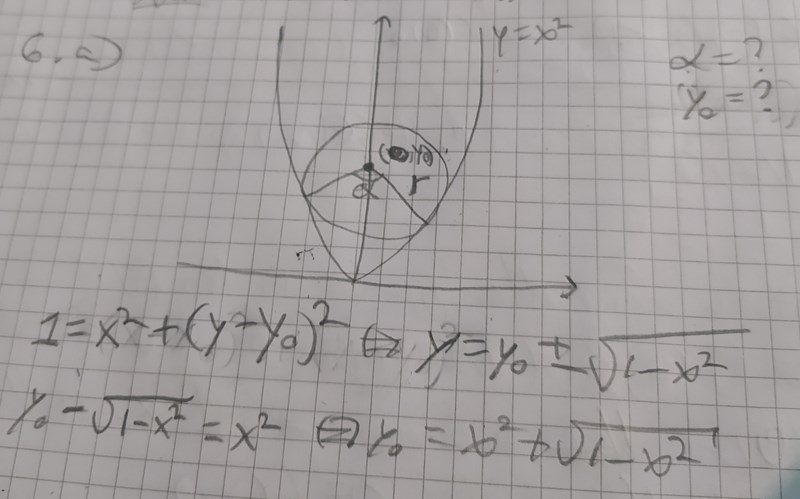 6. a)
y = x²
α = ?
y₀ = ?
α
r
1 = x² + (y - y₀)² ⇔ y = y₀ ± √1 - x²
y₀ - √1 - x² = x² ⇔ y₀ = x² + √1 - x²